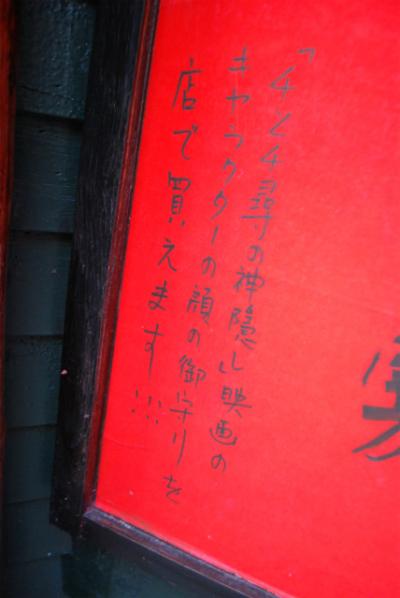 「千と千尋の神隠し」映画の
キャラクターの顔の御守りを
店で買えます!!!